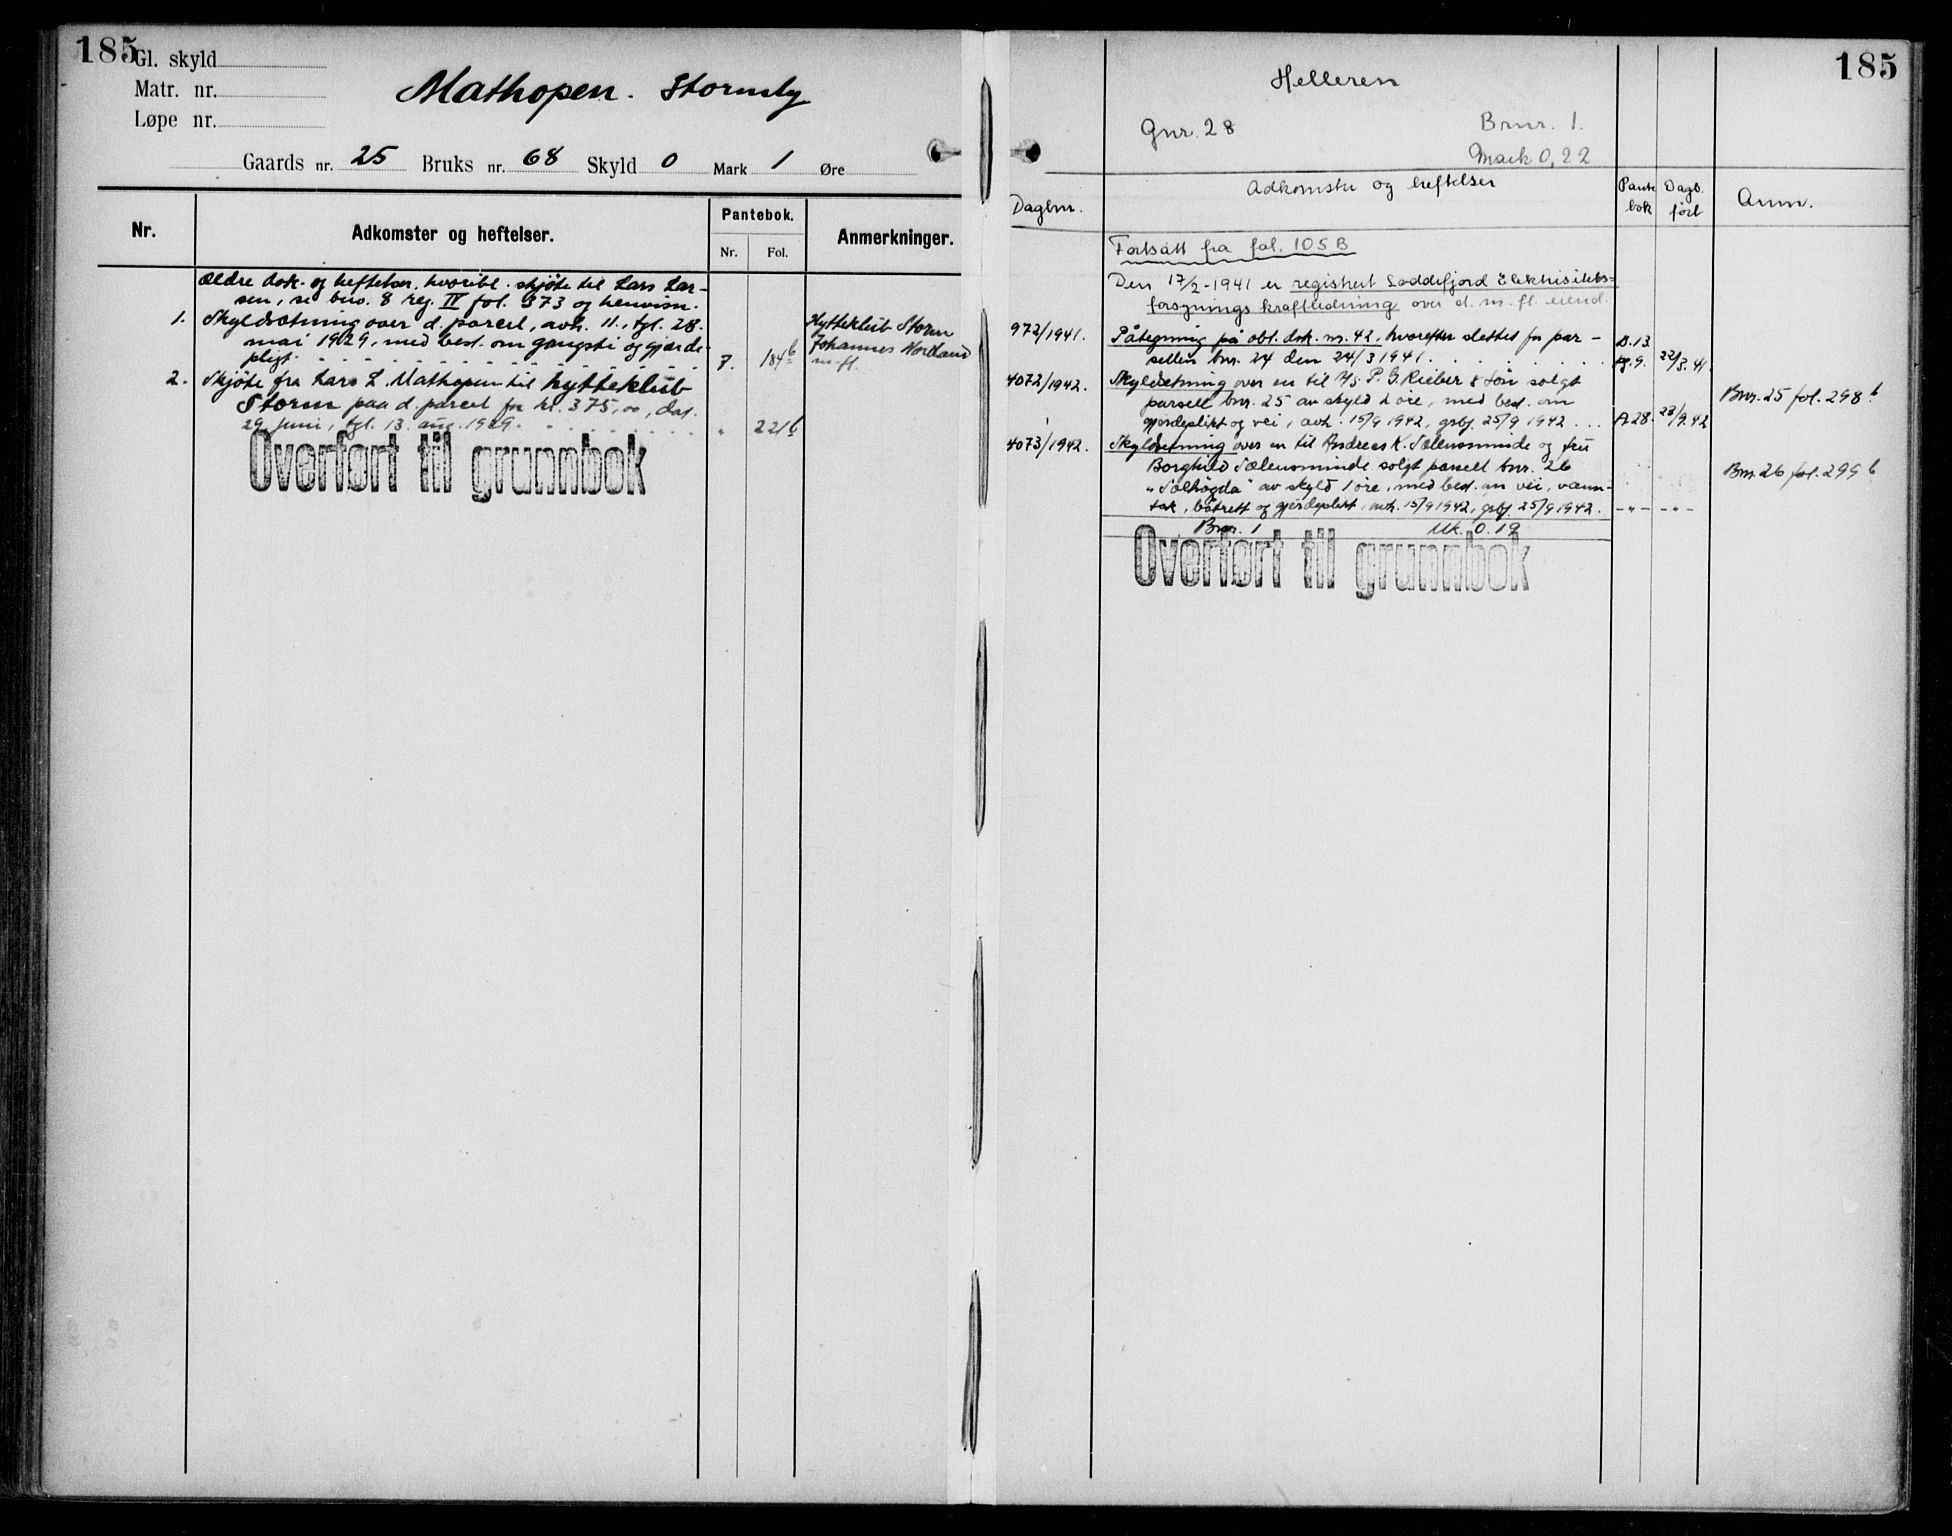 185
Gl. skyld
Matr. nr.
Løpe nr.
Mathopen. Stormly
Gaards nr. 25 Bruks nr. 68 Skyld 0 Mark 1 Øre
Nr.
Adkomster og heftelser.
Pantebok.
Nr. Fol.
Anmerkninger.
Ældre dok. og heftelser, hvoribl. skjøte til Lars Lar-
sen, se bno. 8 reg. IV fol. 373 og henvisn.
1. Skyldsætning over d. parcel, avh. 11., tgl. 28.
mai 1929, med best. om gangsti og gjærde-
pligt. 7. 184b
Hytteklub Storm
Johannes Nordland
m. fl.
2. Skjøte fra Lars L. Mathopen til Hytteklub
Storm paa d. parcel for kr. 375,00, dat.
29. juni, tgl. 13. aug. 1929. " 221b
Overført til grunnbok
185
Helleren
Gnr. 28 Brnr. 1.
Mark 0,22
Dagbnr.
Adkomster og heftelser
Pante bok
Dagb. ført
Anm.
Fortsatt fra fol. 105 B
Den 17/2-1941 er registrert Loddefjord Elektrisitets-
forsynings kraftledning over d. m. fl. eiend.
972/1941. Påtegning på obl. dok. nr. 42, hvorefter slettet for par-
sellen bnr. 24 den 24/3 1941. B.13 22/3.41
4072/1942. Skyldsetning over en til A/S P. G. Rieber & Søn solgt
parsell bnr. 25 av skyld 2 øre, med best. om
gjerdeplikt og vei, avh. 15/9 1942, gsbj. 25/9 1942 ... A 28. 28/9.42
Bnr. 25 fol. 298b
4073/1942. Skyldsetning over en til Andreas K. Sælensminde og fru
Borghild Sælensminde solgt parsell bnr. 26
"Solhøgda" av skyld 1 øre, med best. om vei, vann-
tak, båtrett og gjerdeplikt, avh. 15/9 1942, gsbj. 25/9 1942. -"- -"-
Bnr. 26 fol. 299b
Bnr. 1 Mk. 0.19
Overført til grunnbok